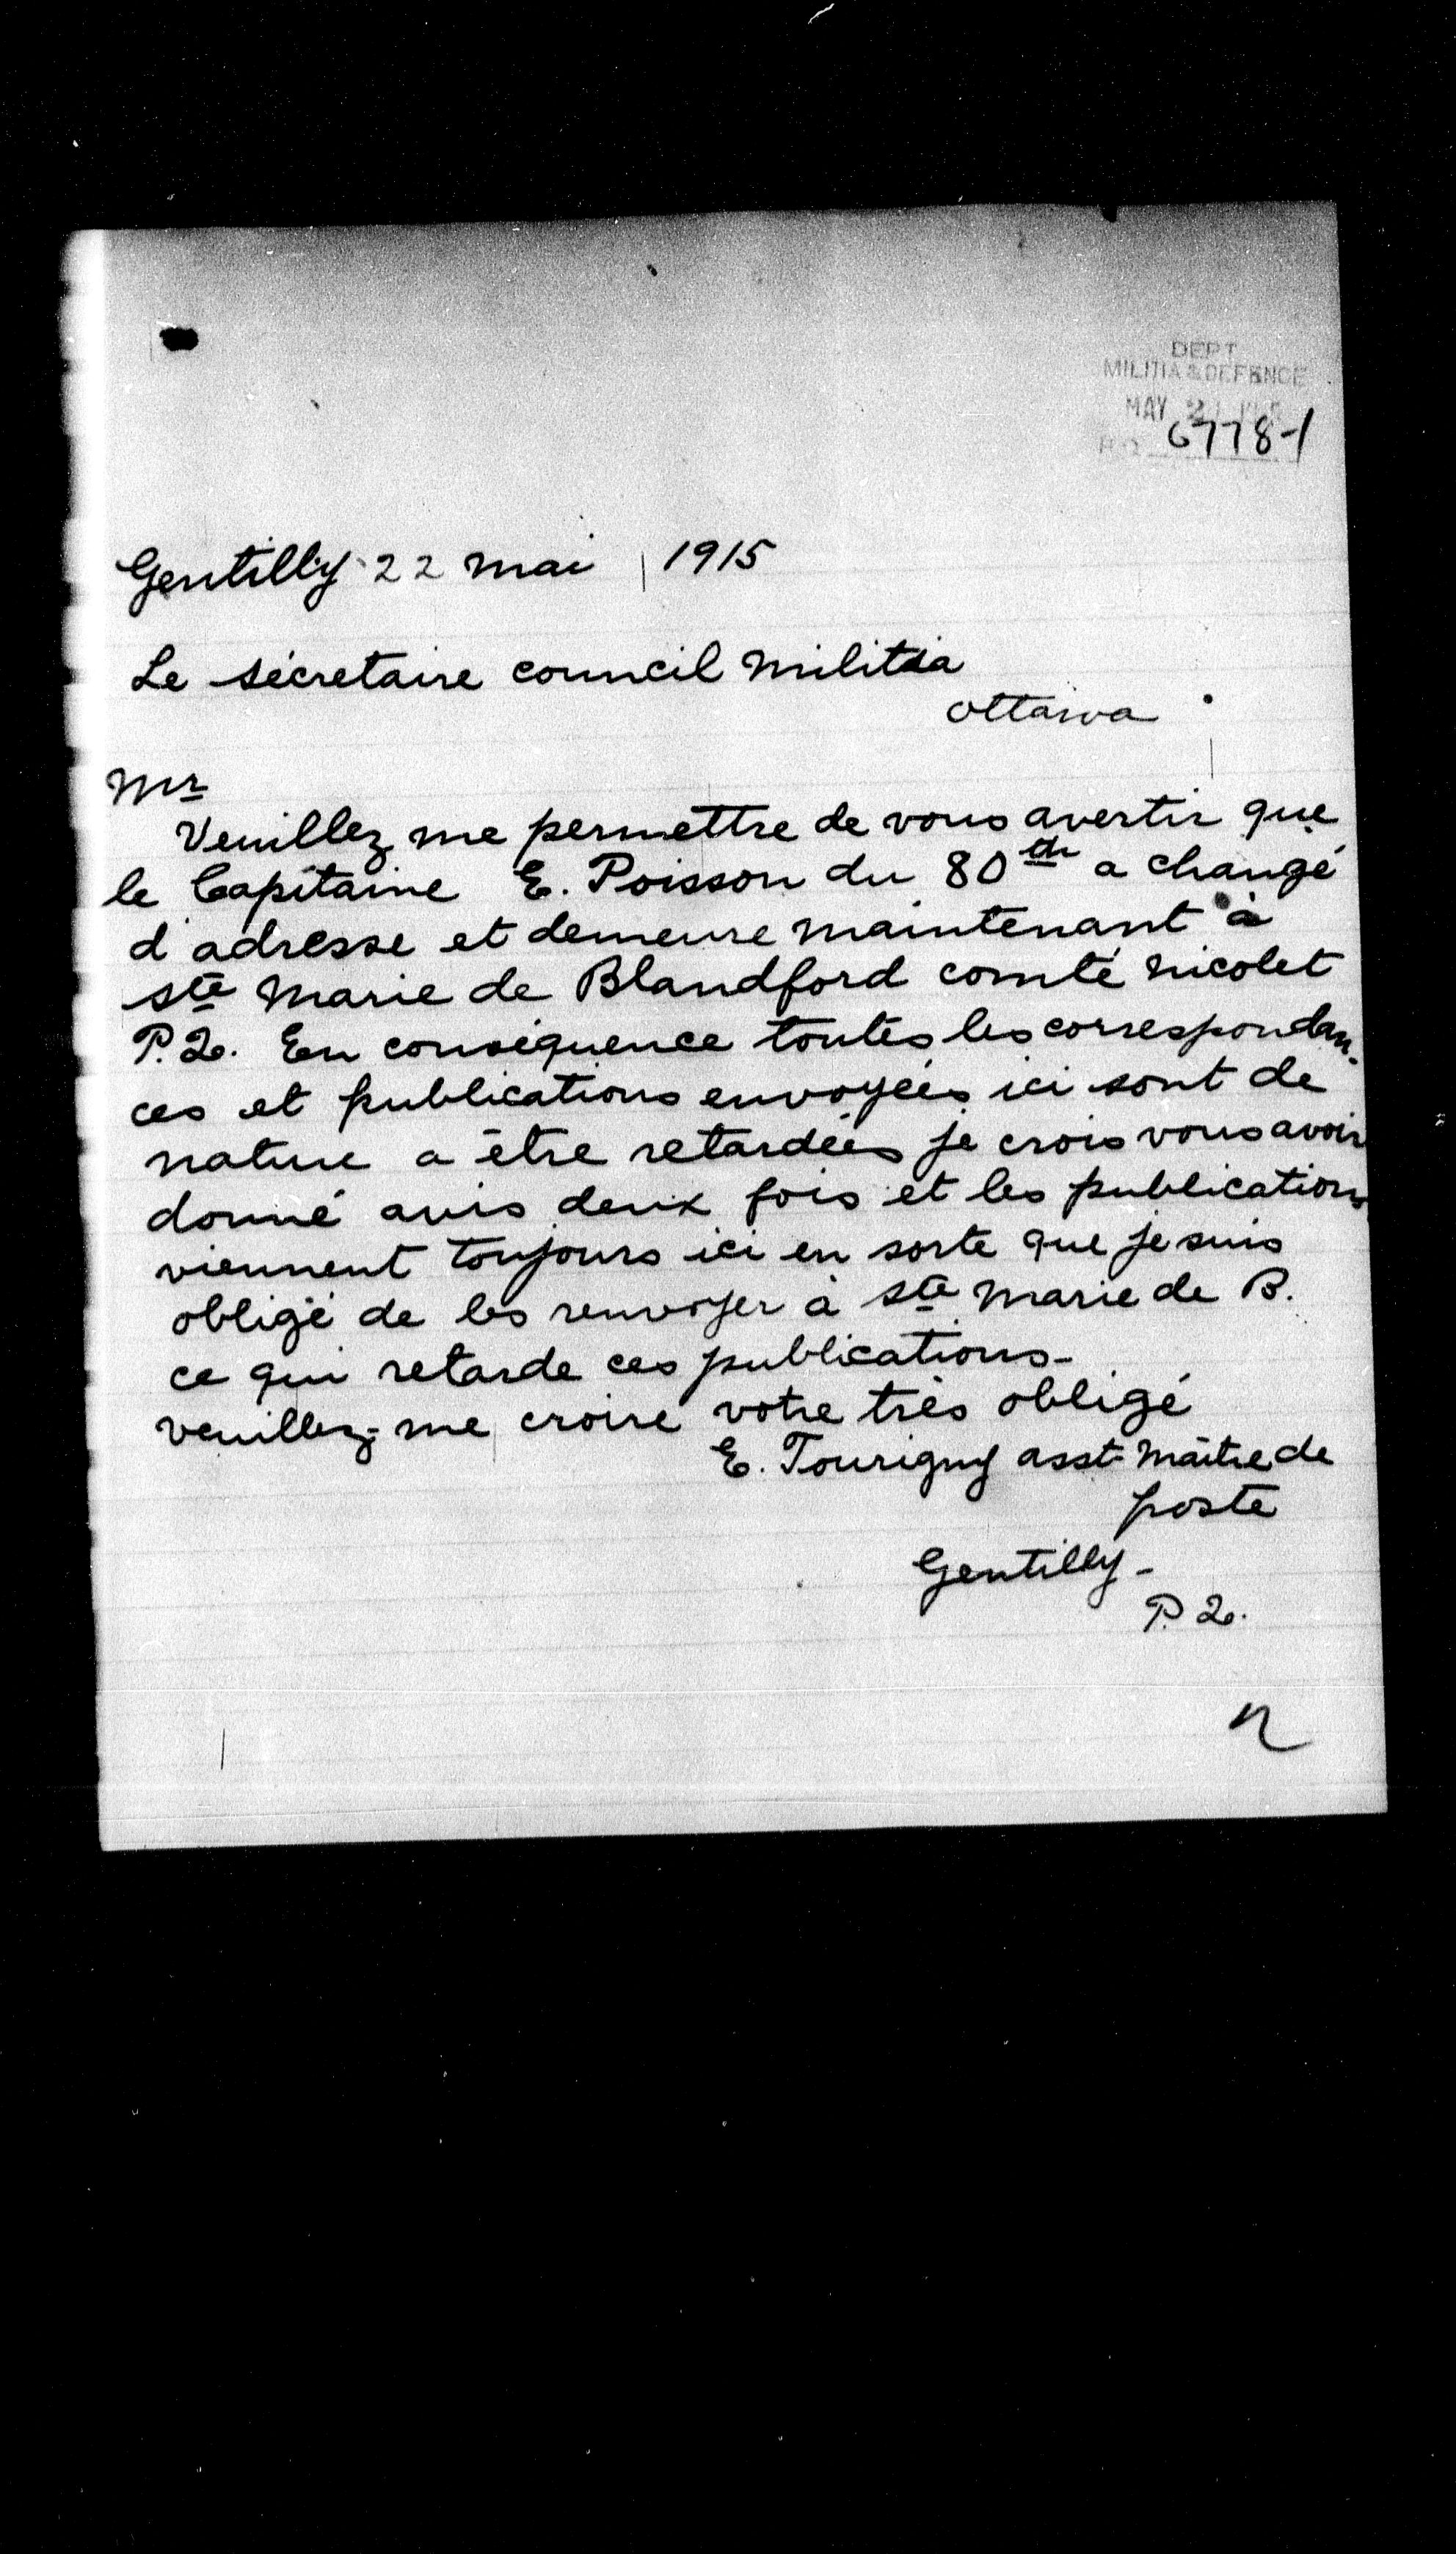 DEPT
MILITIA & DEFENCE
MAY
H.Q. 6778-1
Gentilly 22 mai 1915
Le sécretaire council militia
Ottawa
Mr
Veuillez me permettre de vous avertir que
le Capitaine E. Poisson du 80 a changé
d'adresse et demeure maintenant à
ste Marie de Blandford comté Nicolet
P.Q. En conséquence toutes les correspondan-
ces et publications envoyées ici sont de
nature a être retardées je crois vous avoir
donné avis deux fois et les publications
viennent toujours ici en sorte que je suis
obligé de les renvoyer à ste Marie de B.
ce qui retarde ces publications-
veuillez-me croire votre très obligé
E. Tourigny asst-Maître de
poste
Gentilly-
P.Q.